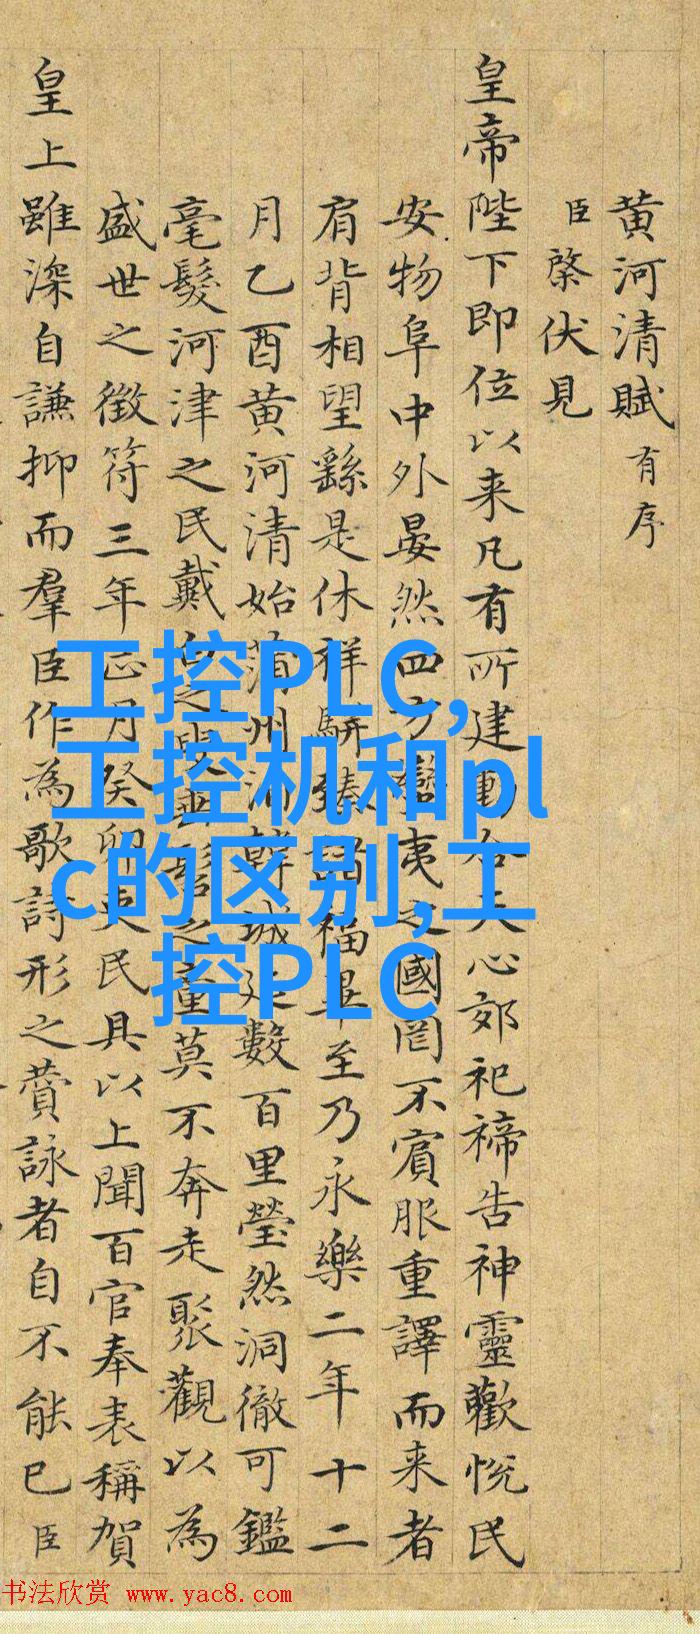 黄河清賦有序
臣棨伏見
皇帝陛下即位以来凡有所建動合天心郊祀禘告神靈歡悅民
安物阜中外晏然四方蠻夷之國罔不賓服重譯而来者
肩背相望繇是休祥駢臻諸福畢至乃永樂二年十二
月乙酉黄河清始蒲州韓城延數百里瑩然洞徹可鑑
毫髮河津之民戴白之叟垂髫之童莫不奔走聚觀以為
盛世之徵符三年正月癸卯吏民具以上聞百官奉表稱賀
皇上雖深自謙抑而羣臣作為歌詩形之賛詠者自不能已臣
工控PLC,
工控机和pl
c的区别,工
控PLC
书法欣赏 www.yac8.com